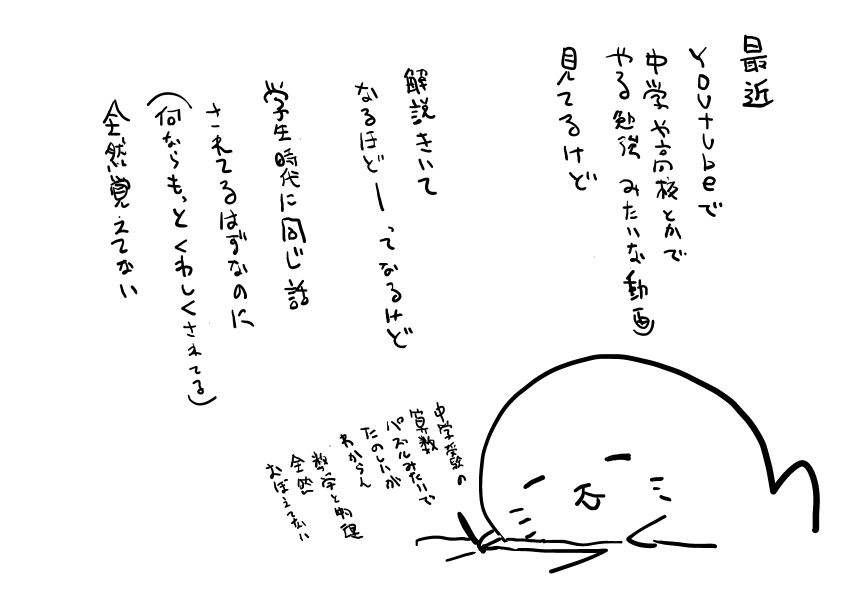 最近
Youtubeで
中学や高校とかで
やる勉強みたいな動画
見てるけど
解説きいて
なるほどーってなるけど
学生時代に同じ話
されてるはずなのに
(何ならもっとくわしくされてる)
全然覚えてない
中学受験の
算数
パズルみたいで
たのしいが
わからん
数学と物理
全然
おぼえてない